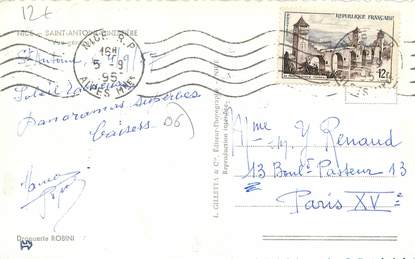 12 €
NICE - SAINT-ANTOINE GINESTIÈRE
NICE R.P.
16H
5 - 9
ALPES MMES
RÉPUBLIQUE FRANÇAISE
12F
St Antoine
Soleil
Panoramas superbes
baisers
06
L. GILLETTA & Cie, Éditeur-Photographe, NICE
Reproduction interdite
Mme Y Renaud
13 Boult Pasteur 13
Paris XVe
Droguerie ROBINI